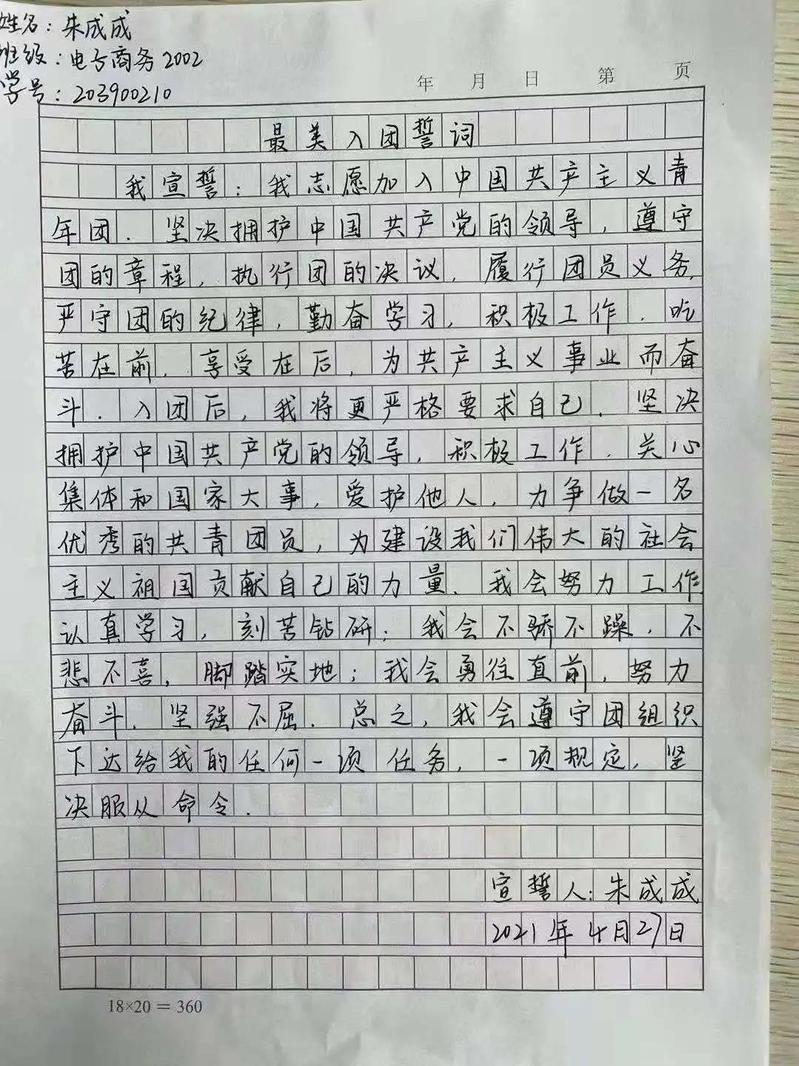 姓名：朱成成
班级：电子商务2002
学号：203900210
年 月 日 第 页
最美入团誓词
我宣誓：我志愿加入中国共产主义青
年团．坚决拥护中国共产党的领导，遵守
团的章程，执行团的决议，履行团员义务，
严守团的纪律，勤奋学习，积极工作．吃
苦在前．享受在后，为共产主义事业而奋
斗．入团后，我将更严格要求自己．坚决
拥护中国共产党的领导，积极工作．关心
集体和国家大事，爱护他人，力争做一名
优秀的共青团员，为建设我们伟大的社会
主义祖国贡献自己的力量．我会努力工作
认真学习，刻苦钻研；我会不骄不躁，不
悲不喜，脚踏实地；我会勇往直前，努力
奋斗．坚强不屈．总之，我会遵守团组织
下达给我的任何一项任务，一项规定，坚
决服从命令．
宣誓人：朱成成
2021年4月27日
18×20＝360